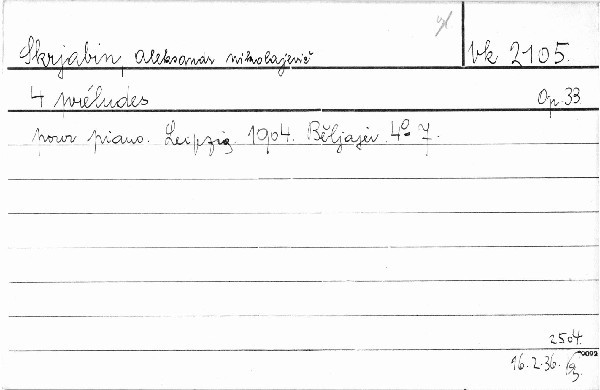 Skrjabin, Aleksandr Nikolajevič vk 2105.
4 préludes Op. 33
pour piano. Leipzig. 1904. Běljajev. 4º 7.
2504.
9092
16.2.36.